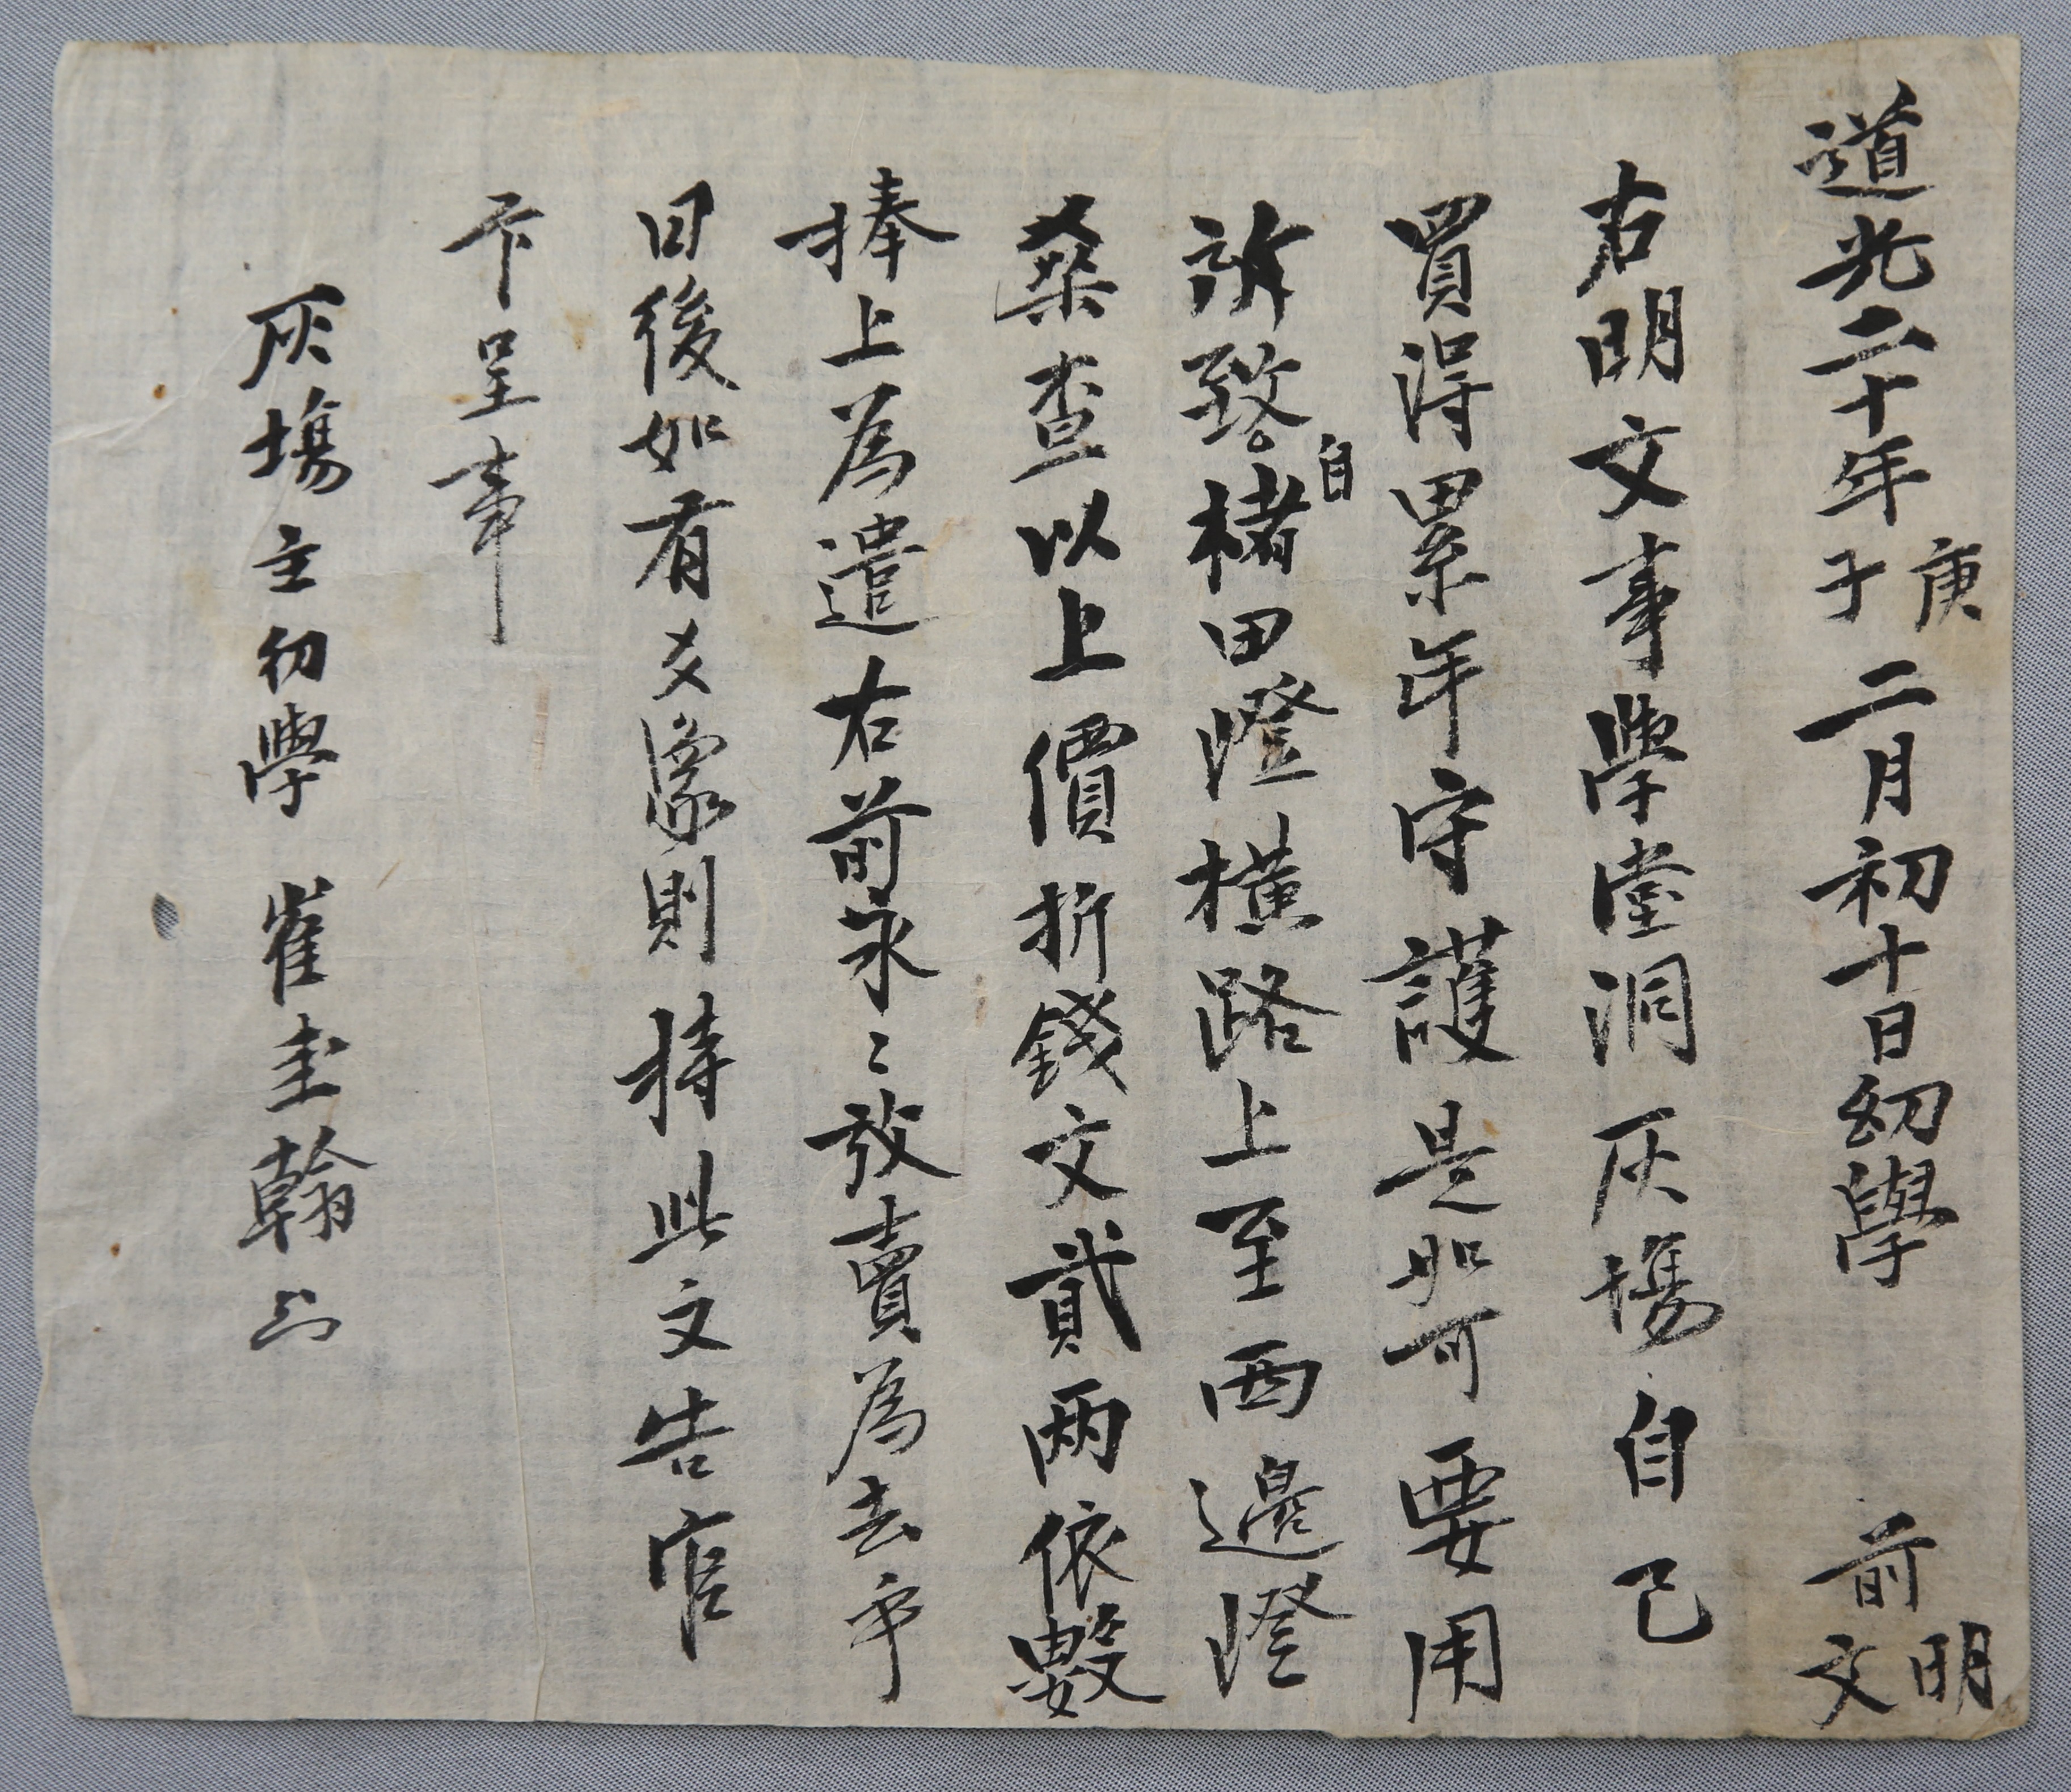 道光二十年庚子二月初十日幼學 前明文
右明文事學堂洞灰塲自己
買得累年守護是如可要用
所致自楮田墱橫路上至西邊墱
桑查以上價折錢文貳兩依數
捧上爲遣右前永〻放賣爲去乎
日後如有爻象則持此文告官
卞呈事
灰塲主幼學 崔圭翰